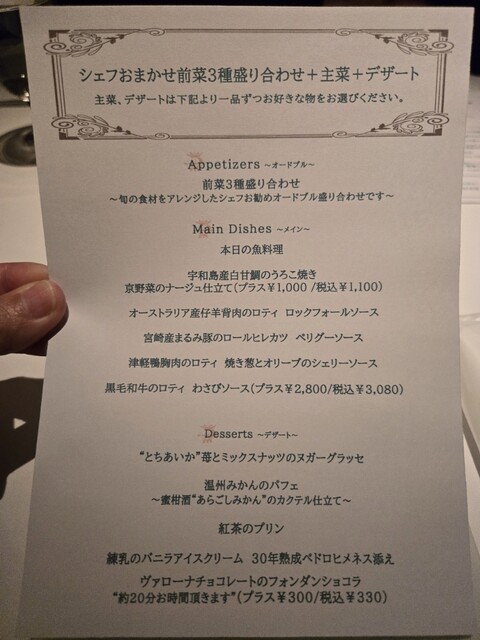 シェフおまかせ前菜3種盛り合わせ＋主菜＋デザート
主菜、デザートは下記より一品ずつお好きな物をお選びください。
Appetizers ～オードブル～
前菜3種盛り合わせ
～旬の食材をアレンジしたシェフお勧めオードブル盛り合わせです～
Main Dishes ～メイン～
本日の魚料理
宇和島産白甘鯛のうろこ焼き
京野菜のナージュ仕立て(プラス￥1,000 /税込￥1,100)
オーストラリア産仔羊背肉のロティ ロックフォールソース
宮崎産まるみ豚のロールヒレカツ ペリグーソース
津軽鴨胸肉のロティ 焼き葱とオリーブのシェリーソース
黒毛和牛のロティ わさびソース(プラス￥2,800/税込￥3,080)
Desserts ～デザート～
“とちあいか”苺とミックスナッツのヌガーグラッセ
温州みかんのパフェ
～蜜柑酒“あらごしみかん”のカクテル仕立て～
紅茶のプリン
練乳のバニラアイスクリーム 30年熟成ペドロヒメネス添え
ヴァローナチョコレートのフォンダンショコラ
“約20分お時間頂きます”(プラス￥300/税込￥330)